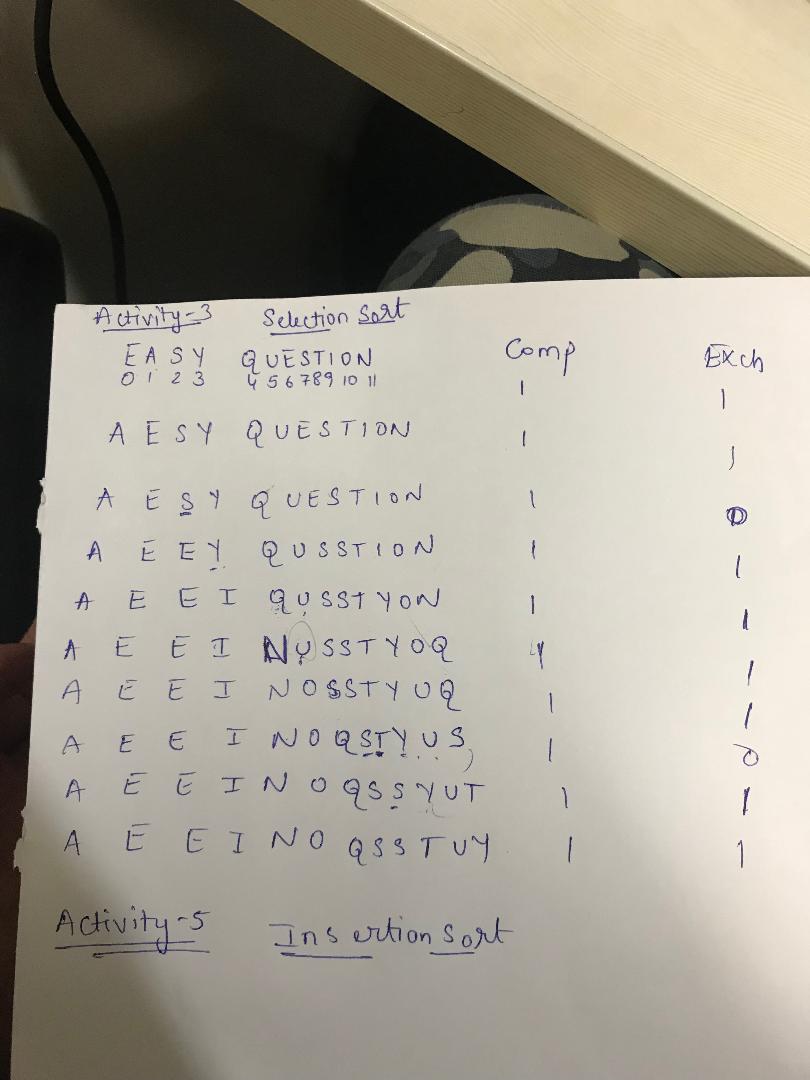 Activity-3 Selection Sort
E A S Y QUESTION Comp Exch
0 1 2 3 4 5 6 7 8 9 10 11 1 1
A E S Y QUESTION 1 1
A E S Y QUESTION 1 0
A E E Y QUSSTION 1 1
A E E I QUSSTYON 1 1
A E E I NUSSTYOQ 1
A E E I NOSSTYUQ 1 1
A E E I NOQSTYUS 1 0
A E E I NOQSSYUT 1 1
A E E I NO QSSTUY 1 1
Activity-5 Insertion Sort